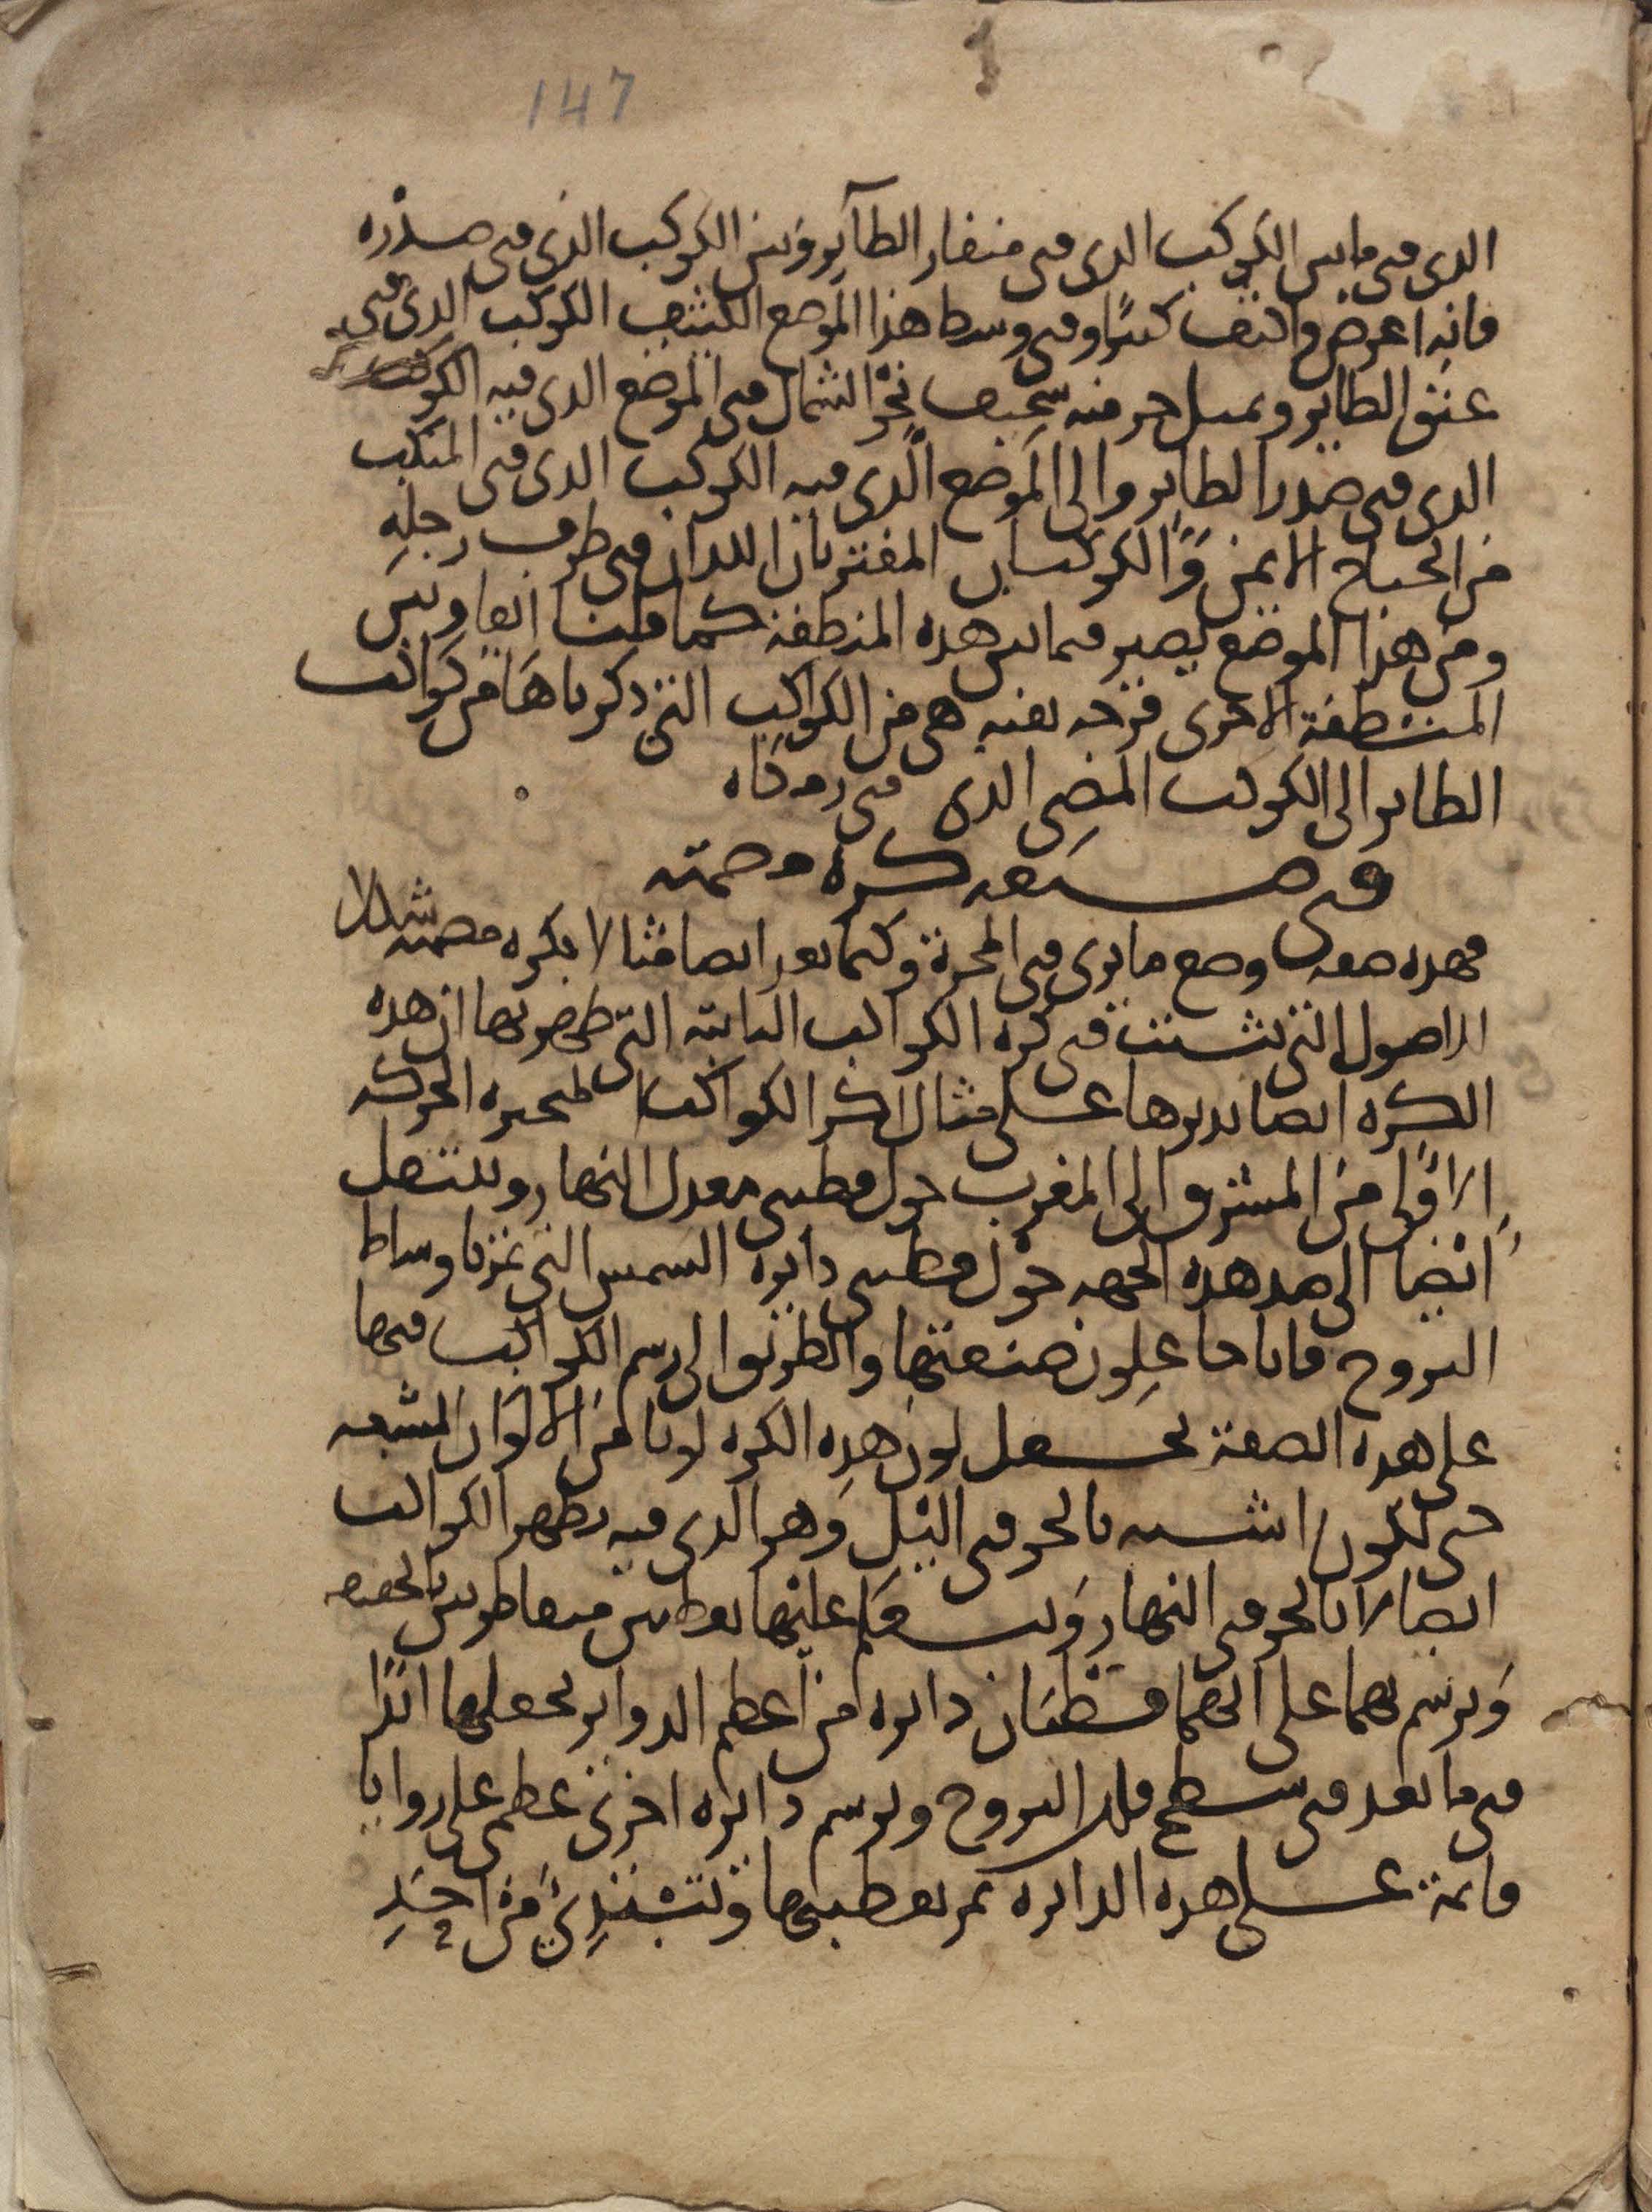 147
الذى فى ما بين الكوكب الذى فى منقار الطآئر وبين الكوكب الذى فى صدره
فانه اعرض واكثف كثيرًا وفى وسط هذا الموضع الكثيف الكوكب الذى فى
عنق الطاير ويميل جز منه سخيف نحو الشمال فى الموضع الذى فيه الكوكب
الذى فى صدر الطاير والى الموضع الذى فيه الكوكب الذى فى المنكب
من الجناح الايمن والكوكبان المقتربان اللذان فى طرف رجله
ومن هذا الموضع يصير فيما بين هذه المنطقة كما قلنا انفا وبين
المنطقة الاخرى فرجه نقيه هى من الكواكب التى ذكرناها من كواكب
الطاير الى الكوكب المضى الذى فى ردفاه
فى صنعه كره مصمته
فهذه صفه وضع ما يرى فى المجرة وكيما نعد ايضا مثالا بكره مصمته
الاصول التى تثبتت فى كره الكواكب الثابته التى ظهر بها ان هذه
الكره ايضا يديرها على مثال اكر الكواكب المتحيره الحركه
الاولى من المشرق الى المغرب حول قطبى معدل النهار وينتقل
ايضا الى ضد هذه الجهه حول قطبى دايره الشمس التى تمر باوساط
البروج فانا جاعلون صنعتها والطريق الى رسم الكواكب فيها
على هذه الصفة نجعل لون هذه الكره لونا من الالوان المشبعه
حتى تكون اشبه بالجو فى الليل وهو الذى فيه تظهر الكواكب
ايضا لا بالجو فى النهار وليعلم عليها نقطتين متقاطرتين بالحقيقه
ويرسم بهما على انهما قطبان دايره من اعظم الدواير نجعلها ابدًا
فى ما بعد فى سطح فلك البروج ونرسم دايره اخرى عظمى على زوايا
قايمة على هذه الدايره تمر بقطبيها ونبتدى من احد